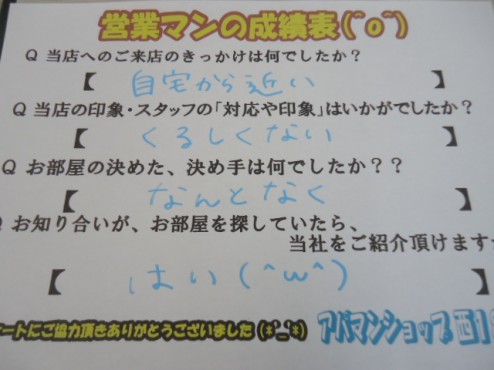 営業マンの成績表(^o^)
Q 当店へのご来店のきっかけは何でしたか？
【 自宅から近い 】
Q 当店の印象・スタッフの「対応や印象」はいかがでしたか？
【 くるしくない 】
Q お部屋の決めた、決め手は何でしたか？？
【 なんとなく 】
Q お知り合いが、お部屋を探していたら、
当社をご紹介頂けます
【 はい(^ω^) 】
ートにご協力頂きありがとうございました(*'_'*)
アパマンショップ 西